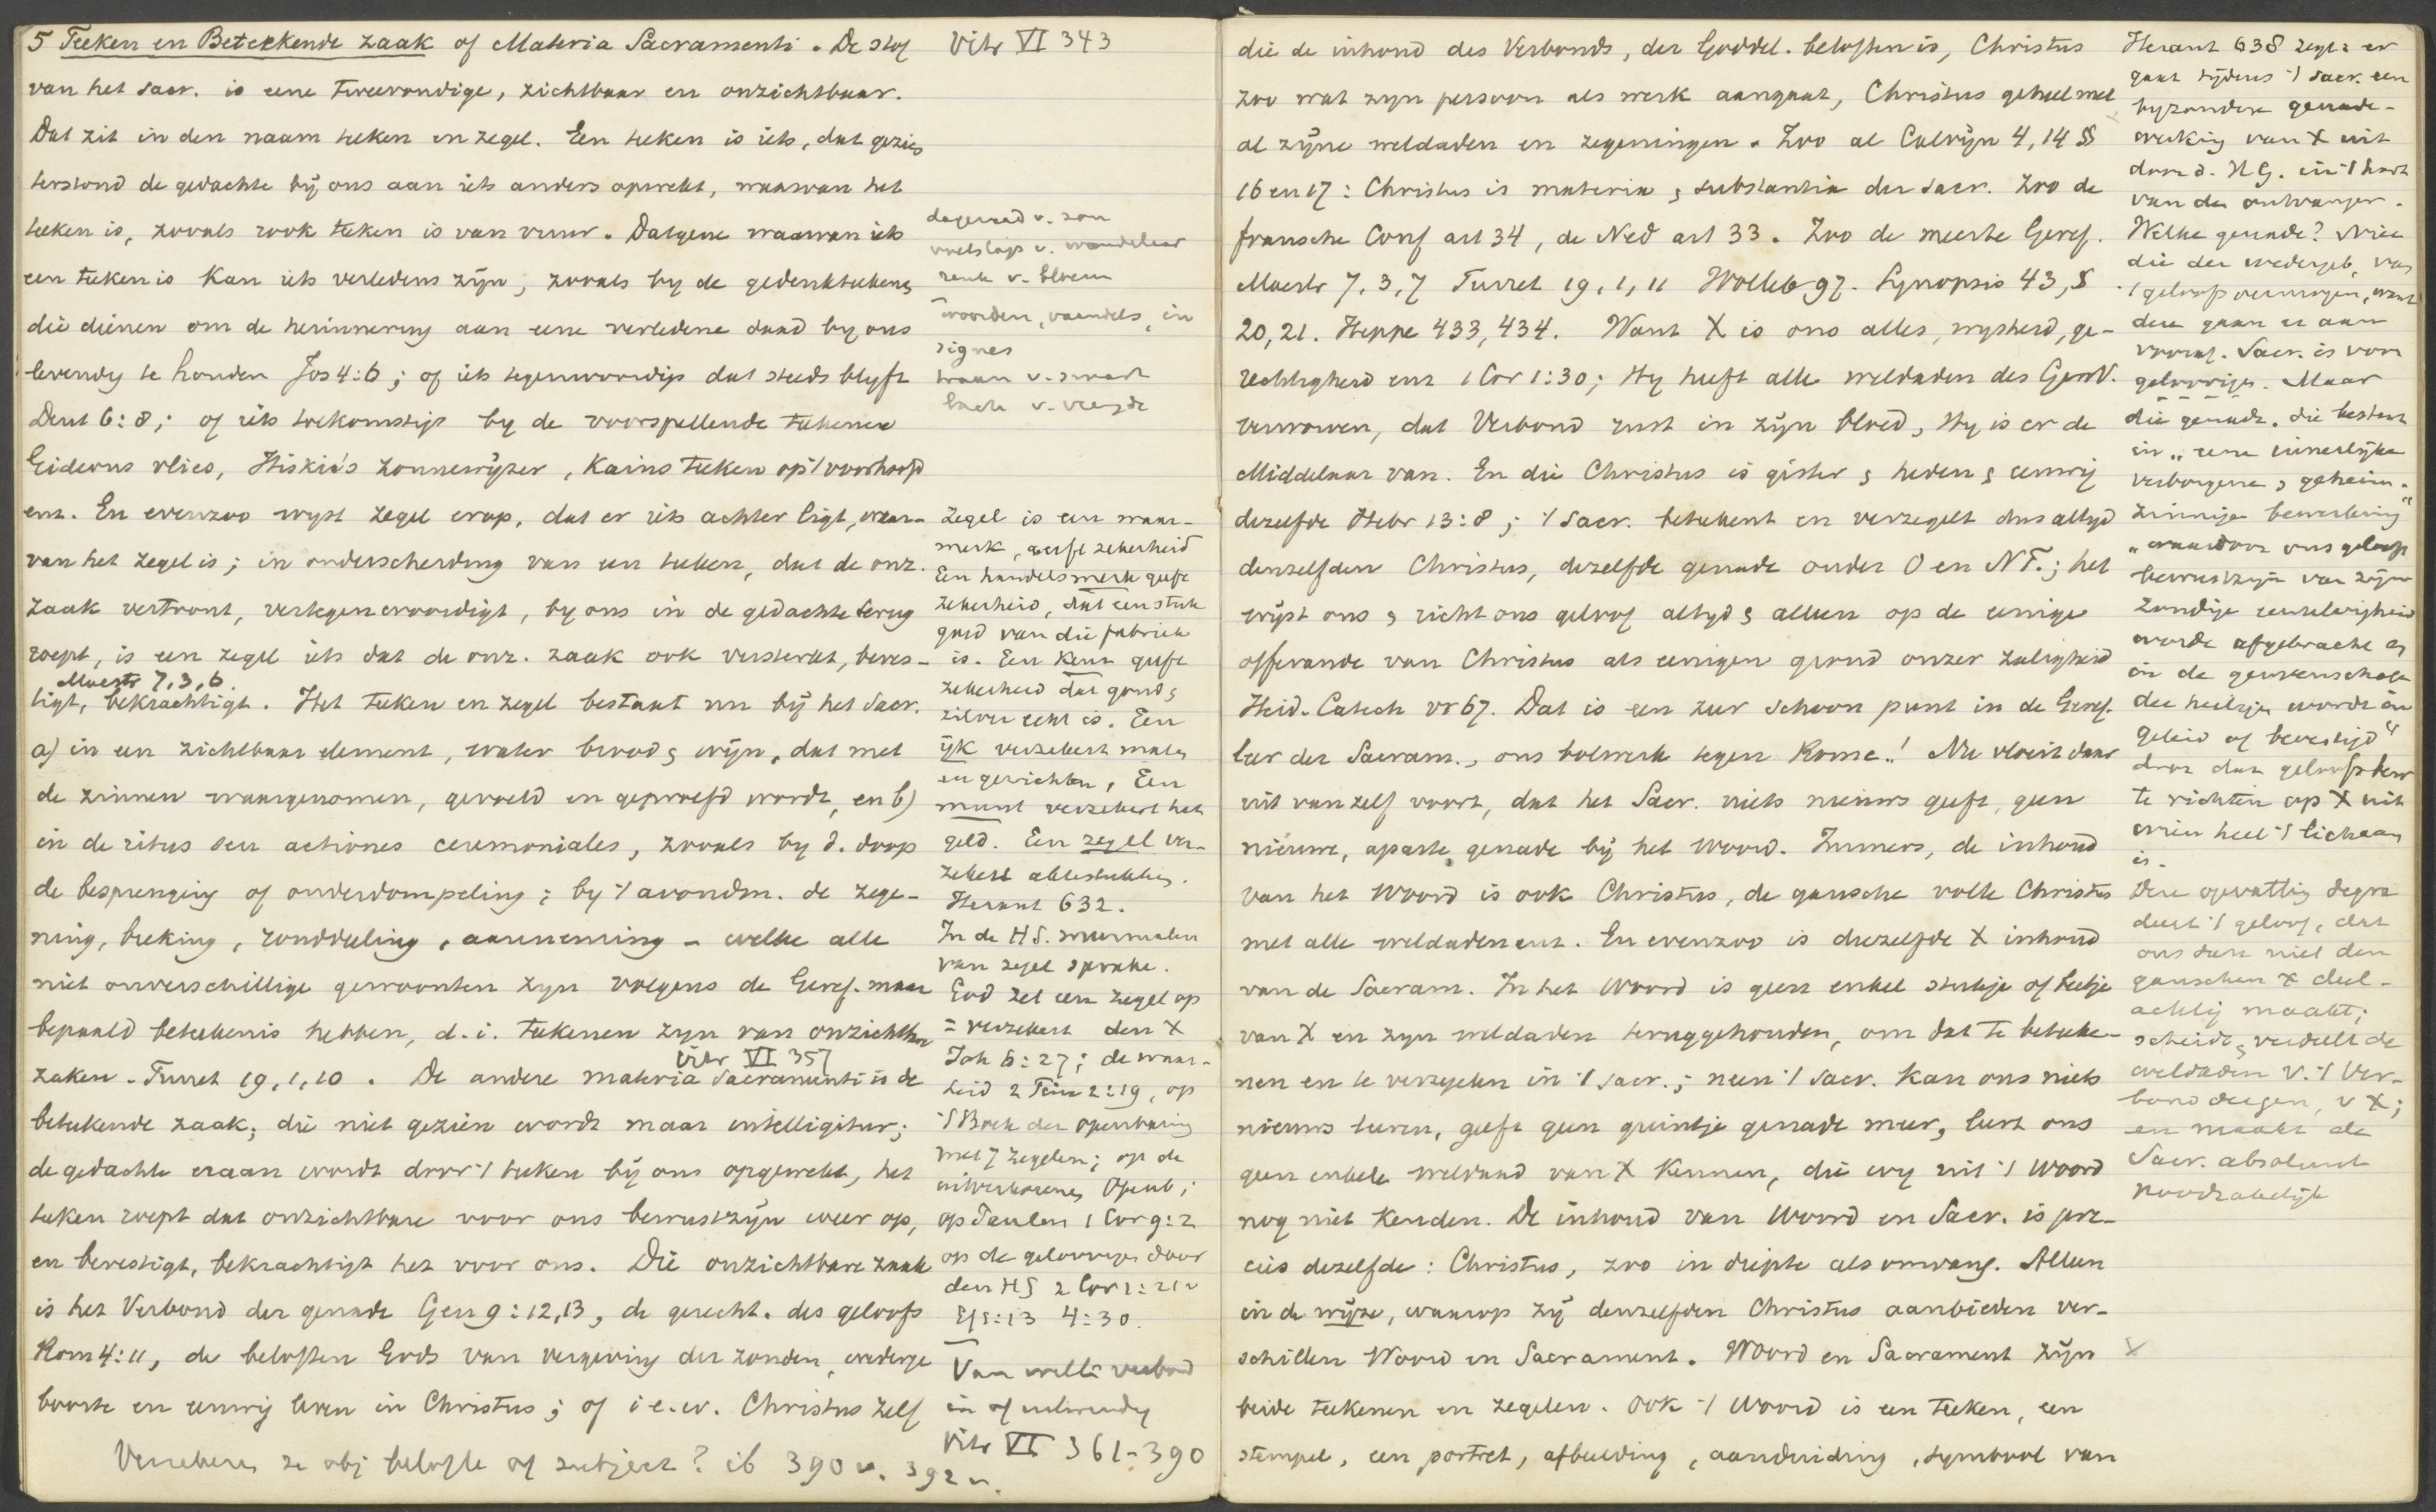 5 Teeken en Beteekende zaak of Materia Sacramenti. De stof
van het sacr. is eene tweevoudige, zichtbaar en onzichtbaar.
Dat zit in den naam teeken en zegel. Een teeken is iets, dat gezien
terstond de gedachte bij ons aan iets anders opwekt, waarvan het
teeken is, zooals rook teeken is van vuur. Datgene waarvan iets
een teeken is kan iets verledens zijn, zooals by de gedenkteekens,
die dienen om de herinnering aan eene verledene daad by ons
levendig te houden Jos 4:6; of iets tegenwoordigs dat steeds blyft
Deut 6:8; of iets toekomstigs by de voorspellende teekenen
Gideons vlies, Hiskia's zonnewijzer, Kains teeken op 't voorhoofd
enz. En evenzoo wyst zegel erop, dat er iets achter ligt, waar-
van het zegel is; in onderscheiding van een teeken, dat de onz.
zaak vertoont, vertegenwoordigt, by ons in de gedachte terug
roept, is een zegel iets dat de onz. zaak ook versterkt, beves-
Maestr 7,3,6
tigt, bekrachtigt. Het teeken en zegel bestaat nu bij het Sacr.
a) in een zichtbaar element, water brood & wijn, dat met
de zinnen waargenomen, gevoeld en geproefd wordt, en b)
in de ritus seu actiones ceremoniales, zooals by d. doop
de besprenging of onderdompeling; by 't avondm. de zege-
ning, breking, ronddeeling, aanneming - welke alle
niet onverschillige gewoonten zyn volgens de Geref. maar
bepaald beteekenis hebben, d.i. teekenen zyn van onzichtbare
Vitr VI 357
zaken. Turret 19,1,10. De andere materia Sacramenti is de
beteekende zaak, die niet gezien wordt maar intelligitur;
de gedachte eraan wordt door 't teeken bij ons opgewekt, het
teeken roept dat onzichtbare voor ons bewustzijn weer op,
en bevestigt, bekrachtigt het voor ons. Die onzichtbare zaak
is het Verbond der genade Gen 9:12,13, de gerecht. des geloofs
Rom 4:11, de beloften Gods van vergeving der zonden, wederge
boorte en eeuwig leven in Christus; of i.e.w. Christus zelf
ze obj belofte of subject? ib 390 v. 392 v.
Vitr VI 343
dageraad v. zon
voetstap v. wandelaar
reuk v. bloem
woorden, vaandels, in
signes
traan v. smart
lach v. vreugde
Zegel is een waar-
merk, geeft zekerheid
Een handelsmerk geeft
zekerheid, dat een stuk
goed van die fabriek
is. Een keur geeft
zekerheid dat goud &
zilver echt is. Een
ijk verzekert maten
en gewichten, Een
munt verzekert het
geld. Een zegel ver-
zekert
Heraut 632.
In de HS. meermalen
van zegel sprake.
God zet een zegel op
= verzekert den X
Joh 6:27; de waar-
heid 2 Tim 2:19, op
't Boek der openbaring
met 7 zegelen; op de
uitverkorenen Openb;
op Paulus 1 Cor 9:2
op de geloovigen door
den HG 2 Cor 1:21v
Ef 1:13 4:30.
Van welk verbond
in of uitwendig
Vitr VI 361-390
die de inhoud des Verbonds, der Goddel. beloften is, Christus
zoo wat zyn persoon als werk aangaat, Christus geheel met
al zijne weldaden en zegeningen. Zoo al Calvijn 4,14 §§
16 en 17: Christus is materia & substantia der sacr. Zoo de
fransche Conf art 34, de Ned art 33. Zoo de meeste Geref.
Maestr 7,3,7 Turret 19,1,11 Wolleb 97. Synopsis 43, §
20,21. Heppe 433,434. Want X is ons alles, wysheid, ge-
rechtigheid enz 1 Cor 1:30; Hy heeft alle weldaden des GenV.
verworven, dat Verbond rust in zijn bloed, Hy is er de
Middelaar van. En die Christus is gister & heden & eeuwig
dezelfde Hebr 13:8; 't sacr. beteekent en verzegelt dus altyd
denzelfden Christus, dezelfde genade onder O en NT.; het
wijst ons & richt ons geloof altyd & alleen op de eenige
offerande van Christus als eenigen grond onzer zaligheid
Heid. Catech vr 67. Dat is een zeer schoon punt in de Geref.
leer der Sacram., ons bolwerk tegen Rome.! Nu vloeit daar
uit vanzelf voort, dat het Sacr. niets nieuws geeft, geen
nieuwe, aparte genade bij het woord. Immers, de inhoud
van het Woord is ook Christus, de gansche volle Christus
met alle weldaden enz. En evenzoo is diezelfde X inhoud
van de Sacram. In het Woord is geen enkel stukje of beetje
van X en zyn weldaden teruggehouden, om dat te beteeke-
nen en te verzegelen in 't sacr.; neen 't sacr. kan ons niets
nieuws leeren, geeft geen greintje genade meer, leert ons
geen enkele weldaad van X kennen, die wy uit 't Woord
nog niet kenden. De inhoud van Woord en Sacr. is pre-
cies dezelfde: Christus, zoo in diepte als omvang. Alleen
in de wijze, waarop zij denzelfden Christus aanbieden ver-
schillen Woord en Sacrament. Woord en Sacrament zijn
beide teekenen en zegelen. Ook 't Woord is een teeken, een
stempel, een portret, afbeelding, aanduiding, symbool van
Heraut 638 zegt: er
gaat tijdens 't sacr. een
byzondere genade-
werking van X uit
door d. HG. in 't hart
van den ontvanger.
Welke genade? Niet
die der wedergeb, van
't geloofsvermogen, want
deze gaan er aan
vooraf. Sacr. is voor
geloovigen. Maar
die genade, die bestaat
in "eene innerlijke
verborgene & geheim-
zinnige bewerking"
"waardoor ons geloofs
bewustzijn van zijne
zondige
worde afgebracht en
in de gemeenschap
der heiligen wordt in
geleid of bevestigd"
door dat geloofsbew
te richten op X uit
wien heel 't lichaam
is.
Deze opvatting degra
deert 't geloof, dat
ons dan niet den
ganschen X deel-
achtig maakt;
scheidt & verdeelt de
weldaden v. 't Ver-
bond v X;
en maakt de
Sacr. absoluut
noodzakelijk